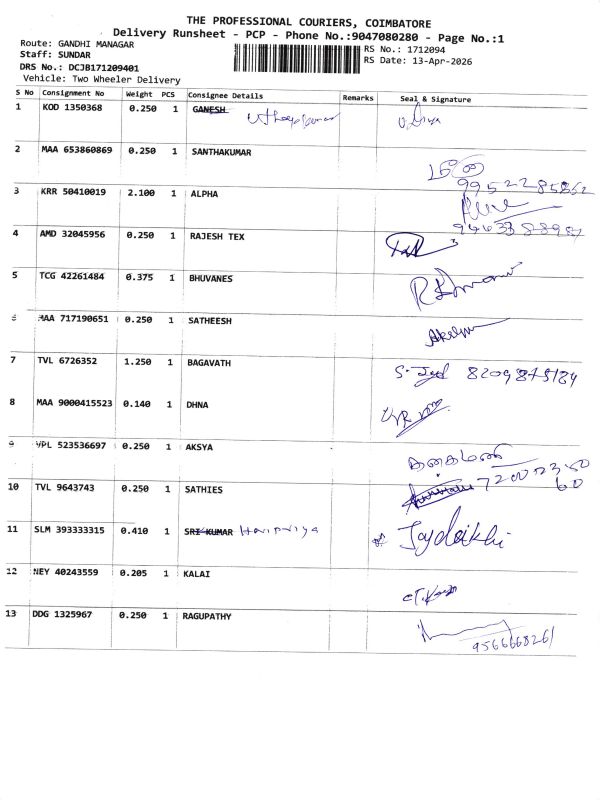 THE PROFESSIONAL COURIERS, COIMBATORE
Delivery Runsheet - PCP - Phone No.:9047080280 - Page No.:1
Route: GANDHI MANAGAR
RS No.: 1712094
Staff: SUNDAR
RS Date: 13-Apr-2026
DRS No.: DCJB171209401
Vehicle: Two Wheeler Delivery
S No Consignment No Weight PCS Consignee Details Remarks Seal & Signature
1 KOD 1350368 0.250 1 GANESH
2 MAA 653860869 0.250 1 SANTHAKUMAR
3 KRR 50410019 2.100 1 ALPHA
4 AMD 32045956 0.250 1 RAJESH TEX
5 TCG 42261484 0.375 1 BHUVANES
MAA 717190651 0.250 1 SATHEESH
7 TVL 6726352 1.250 1 BAGAVATH
8 MAA 9000415523 0.140 1 DHNA
9 VPL 523536697 0.250 1 AKSYA
கனகமணி
10 TVL 9643743 0.250 1 SATHIES
11 SLM 393333315 0.410 1 SRI KUMAR Haripriya
12 NEY 40243559 0.205 1 KALAI
13 DDG 1325967 0.250 1 RAGUPATHY
9566668261